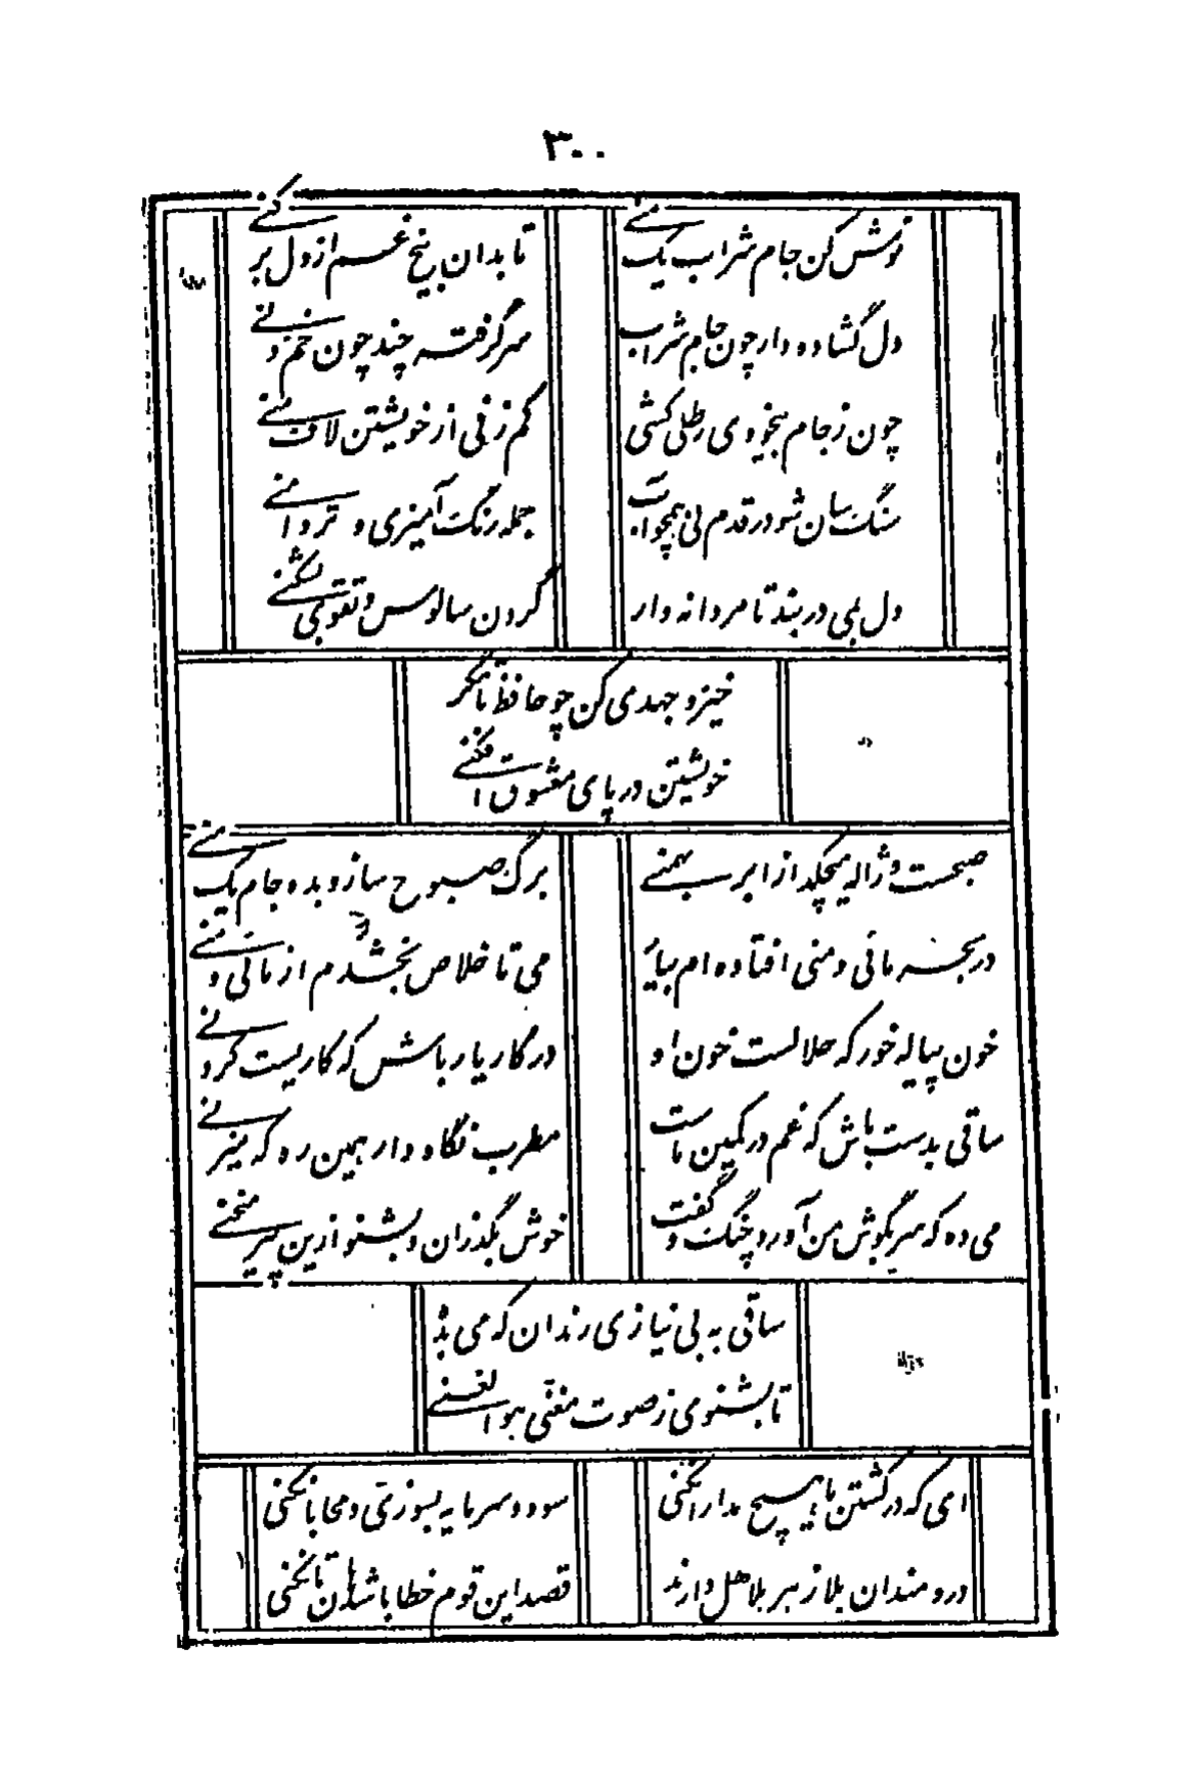 ۳۰۰
نوش کن جام شراب یک منے
تا بدان بیخ غم از دل بر کنے
دل گشاده دار چون جام شراب
سر گرفته چند چون خم دنے
چون ز جام بیخودی رطلی کشی
کم زنی از خویشتن لاف منے
سنگ سان شو در قدم نی همچو آب
جمله رنگ آمیزی و تر دامنے
دل بمی در بند تا مردانه وار
گردن سالوس و تقوی بشکنے
خیز و جهدی کن چو حافظ تا مگر
خویشتن در پای معشوق افکنے
صبحست و ژاله میچکد از ابر بهمنے
برگ صبوح ساز و بده جام یک منے
در بحر مائی و منی افتاده ام بیار
می تا خلاص بخشدم از مائی و منے
خون پیاله خور که حلالست خون او
در کار یار باش که کاریست کردنے
ساقی بدست باش که غم در کمین ماست
مطرب نگاه دار همین ره که میزنے
می ده که سر بگوش من آورد چنگ و گفت
خوش بگذران و بشنو ازین پیر منحنے
ساقی به بی نیازی رندان که می بده
تا بشنوی ز صوت مغنی هوالغنے
ای که در کشتن ما هیچ مدارا نکنی
سود و سرمایه بسوزی و محابا نکنی
دردمندان بلا زهر هلاهل دارند
قصد این قوم خطا باشد هان تا نکنی